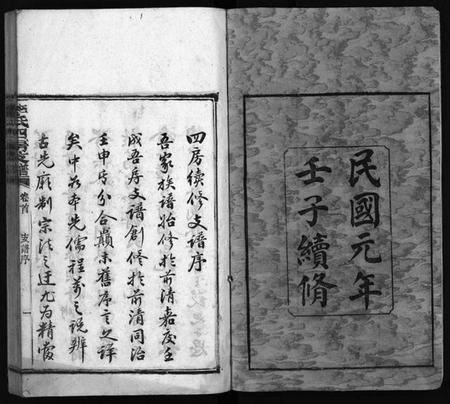 民國元年
壬子續脩
四房續修支譜序
吾家族譜始修於前清嘉慶壬
成吾房支譜創修於前清同治
壬申其分合顛末舊序言之詳
矣中於本先儒程子之說辨
古先廟制宗法之正尤為精當
氏四房支譜
卷首
支譜序
一